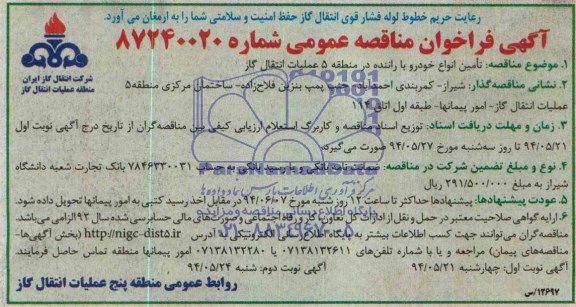 رعایت حریم خطوط لوله فشار قوی انتقال گاز حفظ امنیت و سلامتی شما را به ارمغان می آورد.
آگهی فراخوان مناقصه عمومی شماره ۸۷۲۴۰۰۲۰
شرکت انتقال گاز ایران
منطقه عملیات انتقال گاز
۱. موضوع مناقصه: تأمین انواع خودرو با راننده در منطقه ۵ عملیات انتقال گاز
۲. نشانی مناقصه‌گذار: شیراز- کمربندی احمدآباد- جنب پمپ بنزین فلاح‌زاده- ساختمان مرکزی منطقه۵
عملیات انتقال گاز- امور پیمانها- طبقه اول اتاق ۱۱۴
۳. زمان و مهلت دریافت اسناد: توزیع اسناد مناقصه و کاربرگ استعلام ارزیابی کیفی بین مناقصه‌گران از تاریخ درج آگهی نوبت اول
۹۴/۰۵/۲۱ تا روز سه‌شنبه مورخ ۹۴/۰۵/۲۷ صورت می‌گیرد.
۴. نوع و مبلغ تضمین شرکت در مناقصه: ضمانت‌نامه بانکی و یا رسید بانکی به حساب ۷۸۴۶۳۳۰۰۳۱ بانک تجارت شعبه دانشگاه
شیراز به مبلغ ۲۹۱/۵۰۰/۰۰۰ ریال
۵. عودت پیشنهادها: پیشنهادها حداکثر تا ساعت ۱۲ روز شنبه مورخ ۹۴/۰۶/۰۷ در مقابل اخذ رسید کتبی به امور پیمانها تحویل داده شود.
۶. ارایه گواهی صلاحیت معتبر در حمل و نقل از ادارات کل تعاون کار و رفاه اجتماعی و صورت‌های مالی حسابرسی شده سال ۹۳ الزامی می‌باشد.
مناقصه‌گران می‌توانند جهت کسب اطلاعات بیشتر به پایگاه اطلاع‌رسانی الکترونیکی به آدرس http://nigc-dist5.ir (بخش آگهی‌ها-
مناقصه‌های پیمان) مراجعه و یا با شماره تلفن‌های ۰۷۱۳۸۱۳۲۶۱۱ یا ۰۷۱۳۸۱۳۲۲۸۰ امور پیمانها منطقه تماس حاصل فرمایند.
آگهی نوبت اول: چهارشنبه ۹۴/۰۵/۲۱ آگهی نوبت دوم: شنبه ۹۴/۰۵/۲۴
روابط عمومی منطقه پنج عملیات انتقال گاز
۱۲۶۹۷/س